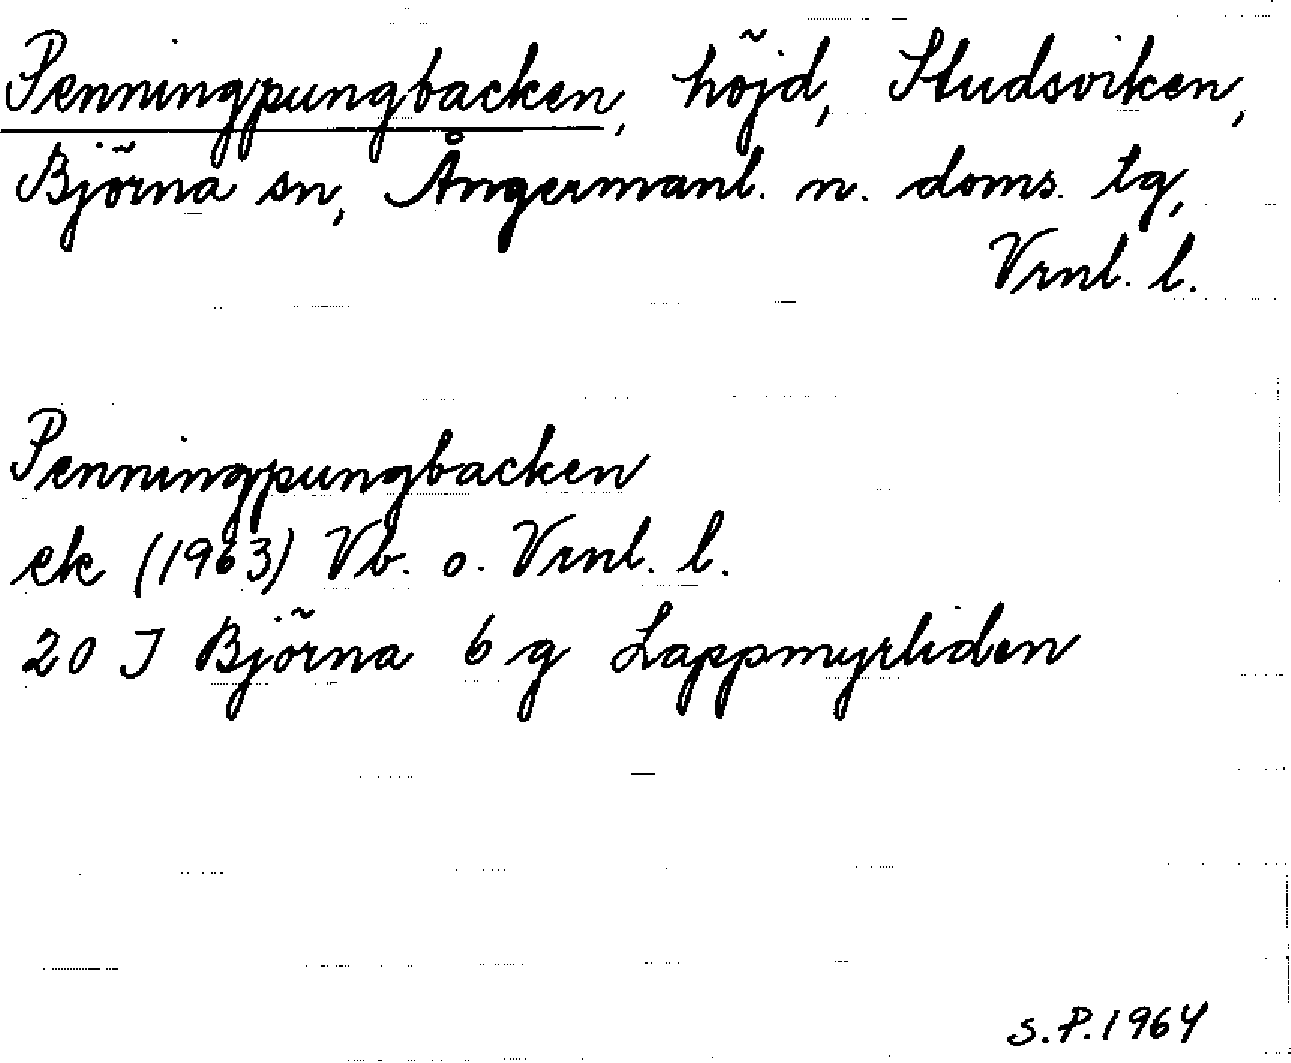 Penningpungbacken, höjd, Studsviken,
Björna sn, Ångermanl. n. doms. tg,
Vrnl. l.
Penningpungbacken
ek (1963) Vb. o. Vrnl. l.
20 J Björna 6 g Lappmyrliden
S.P. 1964